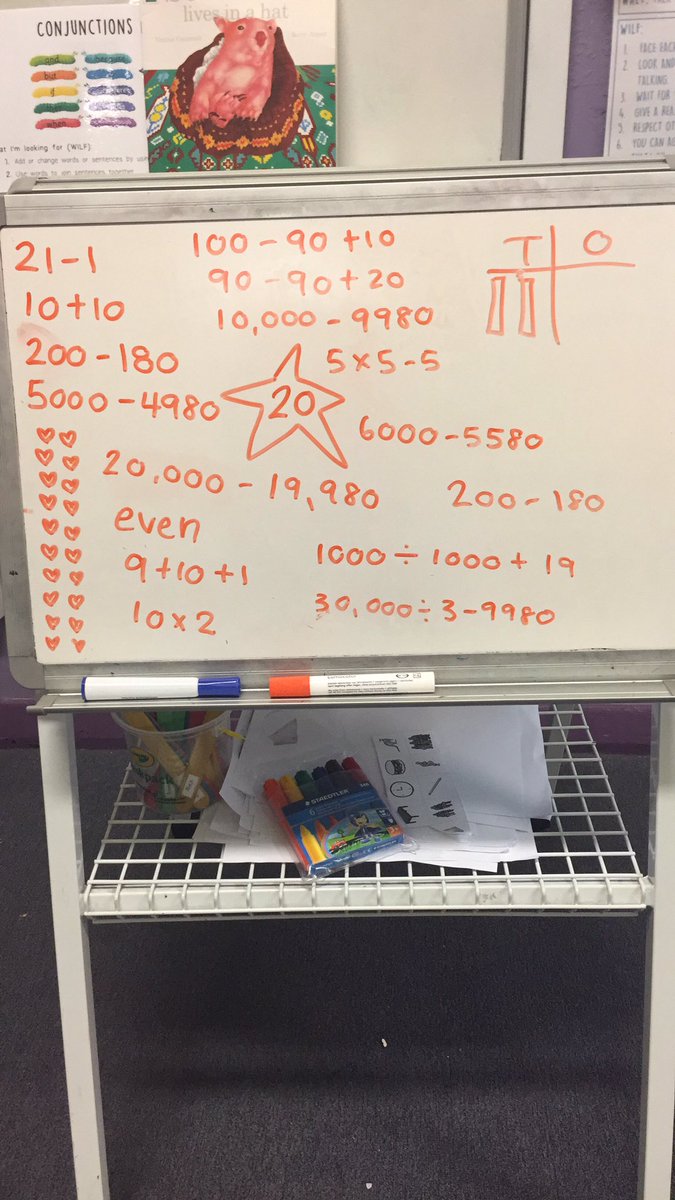 CONJUNCTIONS
and
but
if
when
at I'm looking for (WILF):
1. Add or change words or sentences by
2. Use words to join sentences together
lives in a hat
WILF:
1. FACE
2. LOOK AND
TALKING.
3. WAIT FOR
4. GIVE A
5. RESPECT
6. YOU CAN
21-1
10+10
200-180
5000-4980
100-90+10
90-90+20
10,000-9980
5×5-5
T O
20
6000-5580
20,000-19,980
200-180
even
9+10+1
10×2
1000÷1000+19
30,000÷3-9980
STAEDTLER